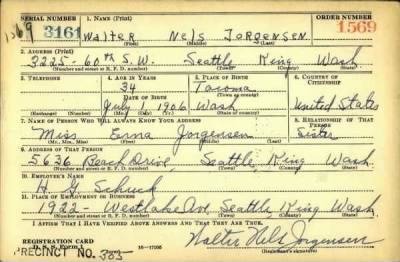 SERIAL NUMBER 1. NAME (Print) ORDER NUMBER
1569 3161 Walter Nels Jorgensen 1569
(First) (Middle) (Last)
2. ADDRESS (Print)
3225 - 60th S.W. Seattle King Wash
(Number and street or R. F. D. number) (Town) (County) (State)
3. TELEPHONE 4. AGE IN YEARS 5. PLACE OF BIRTH 6. COUNTRY OF CITIZENSHIP
34 Tacoma
DATE OF BIRTH (Town or county)
July 1, 1906 Wash United States
(Exchange) (Number) (Mo.) (Day) (Yr.) (State or country)
7. NAME OF PERSON WHO WILL ALWAYS KNOW YOUR ADDRESS 8. RELATIONSHIP OF THAT PERSON
Miss Erna Jorgensen Sister
(Mr., Mrs., Miss) (First) (Middle) (Last)
9. ADDRESS OF THAT PERSON
5636 Beach Drive, Seattle, King Wash.
(Number and street or R. F. D. number) (Town) (County) (State)
10. EMPLOYER'S NAME
H. G. Schuck
11. PLACE OF EMPLOYMENT OR BUSINESS
1922 - Westlake Ave, Seattle, King Wash
(Number and street or R. F. D. number) (Town) (County) (State)
I AFFIRM THAT I HAVE VERIFIED ABOVE ANSWERS AND THAT THEY ARE TRUE.
REGISTRATION CARD
D. S. S. Form 1 16-17105 Walter Nels Jorgensen
(Registrant's signature)
PRECINCT NO. 305